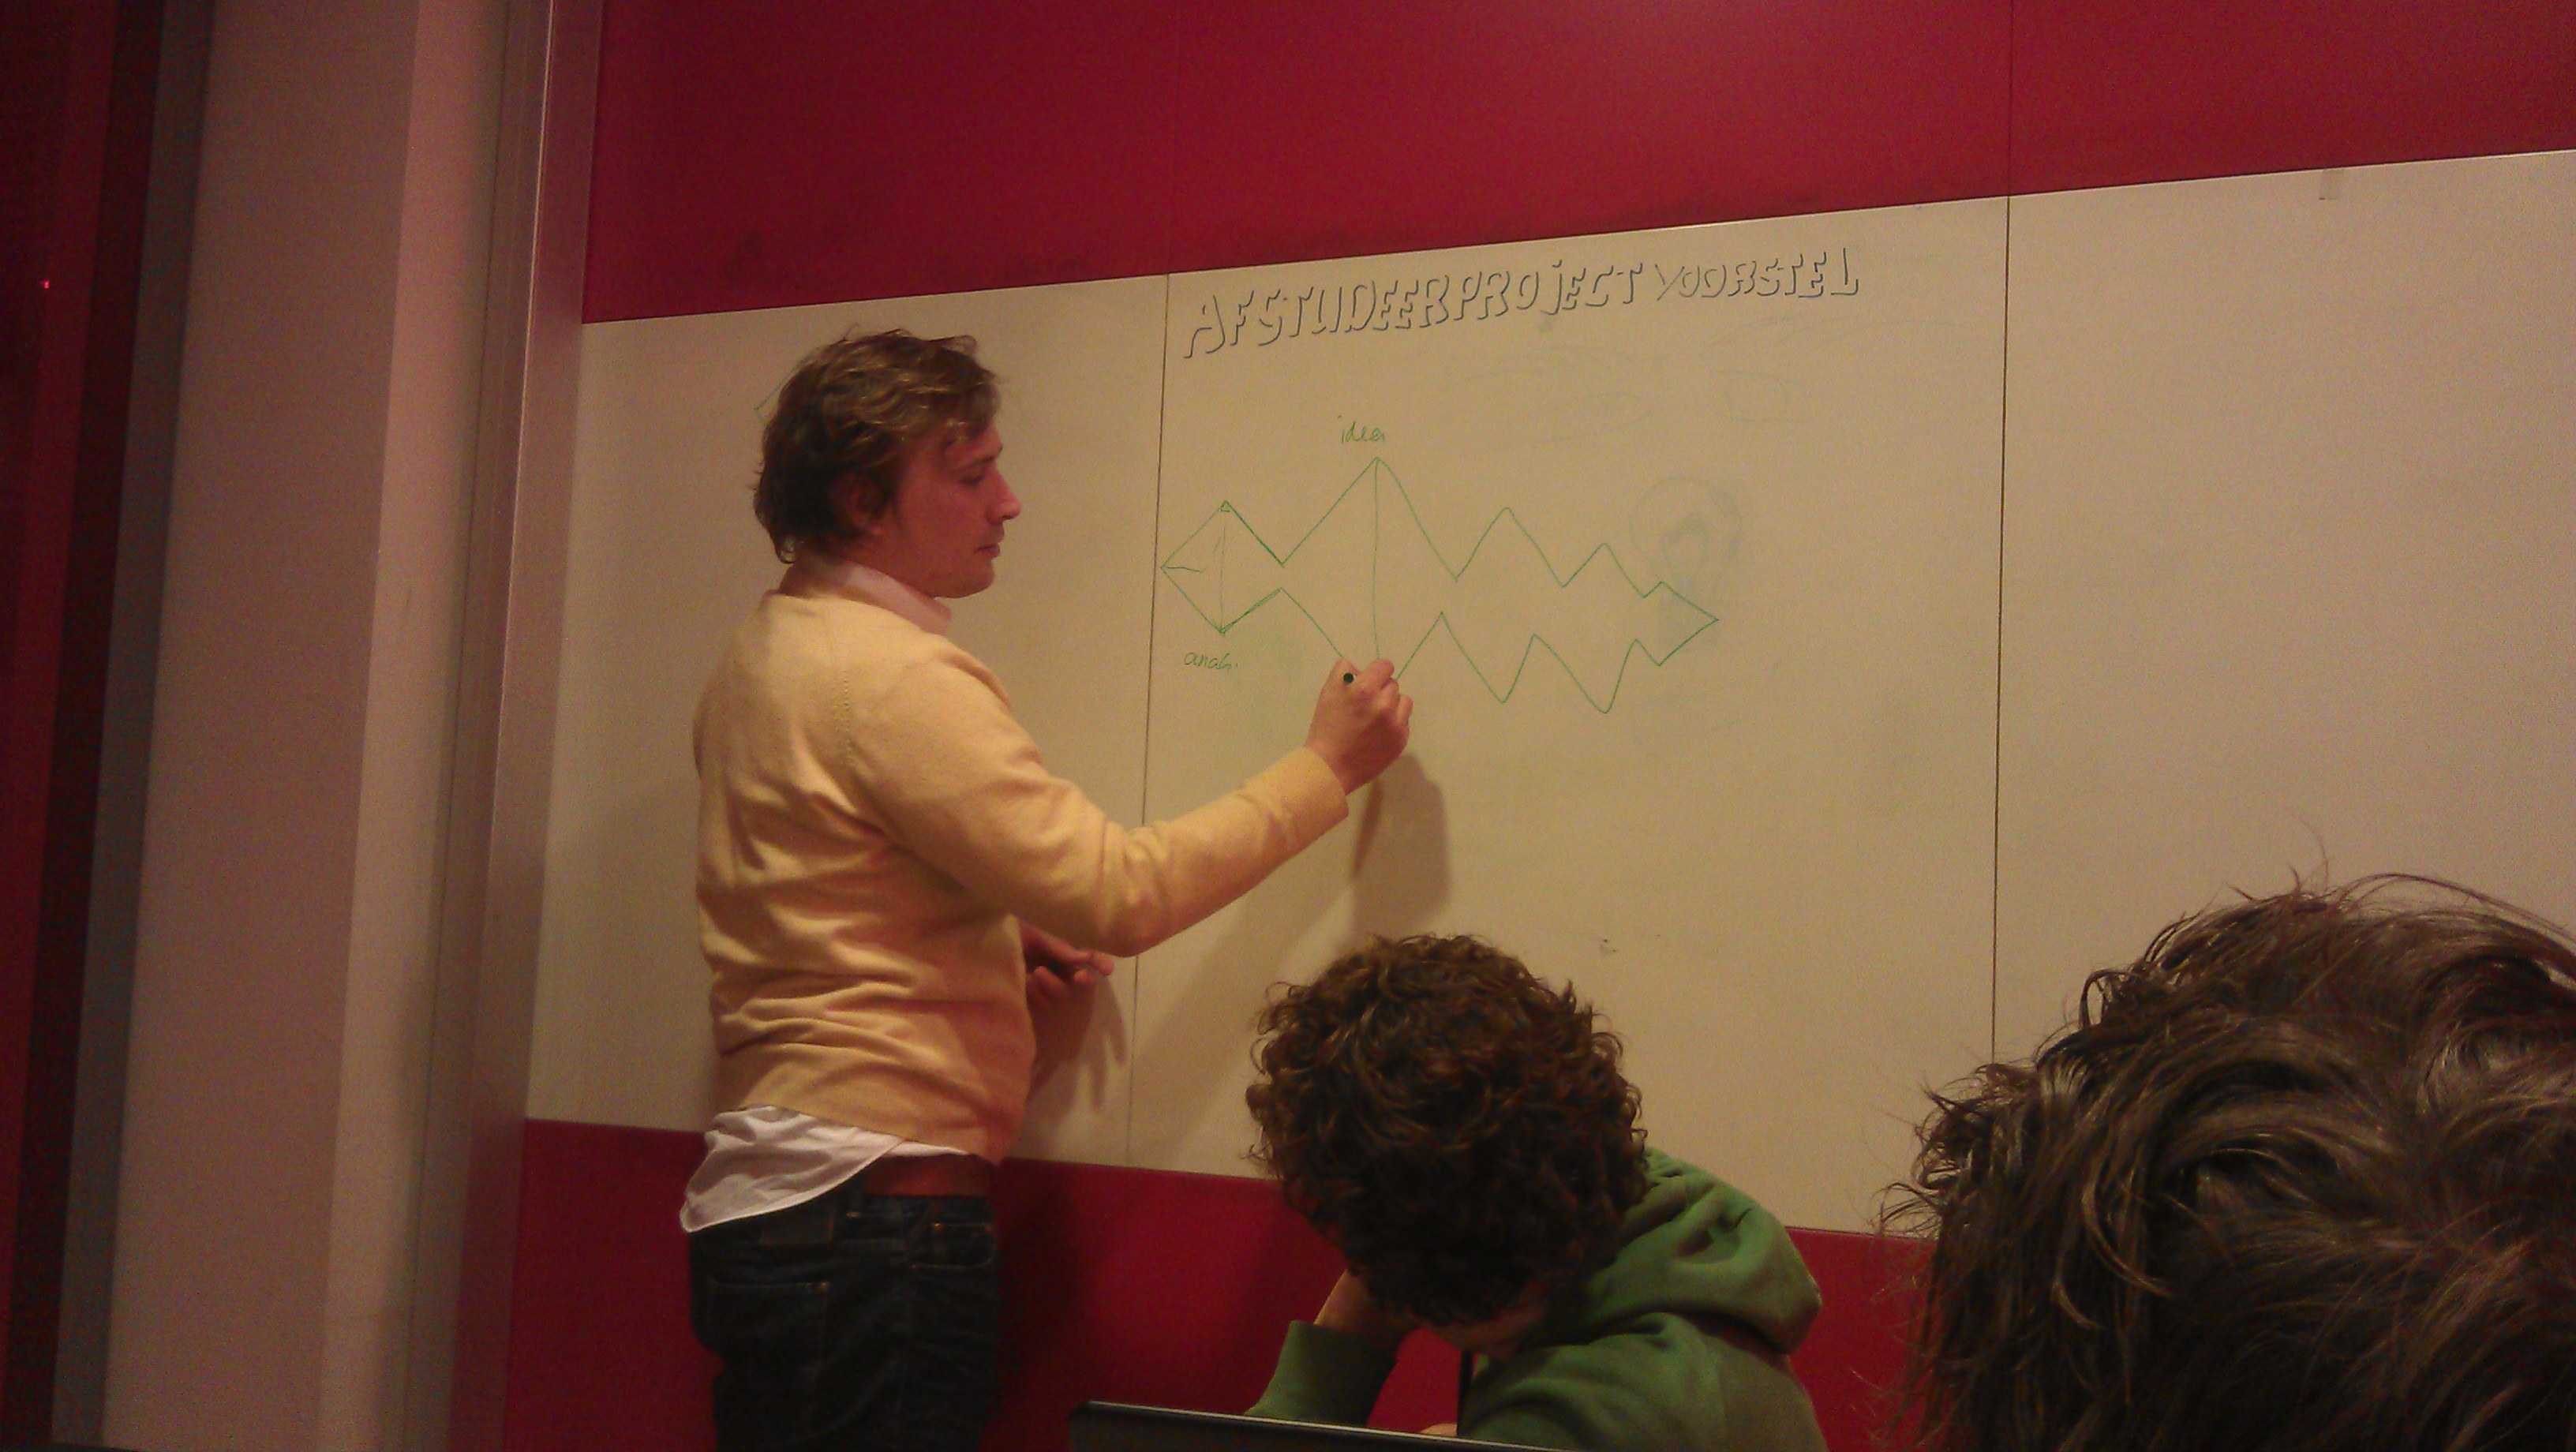 AFSTUDEERPROJECT VOORSTEL
idea